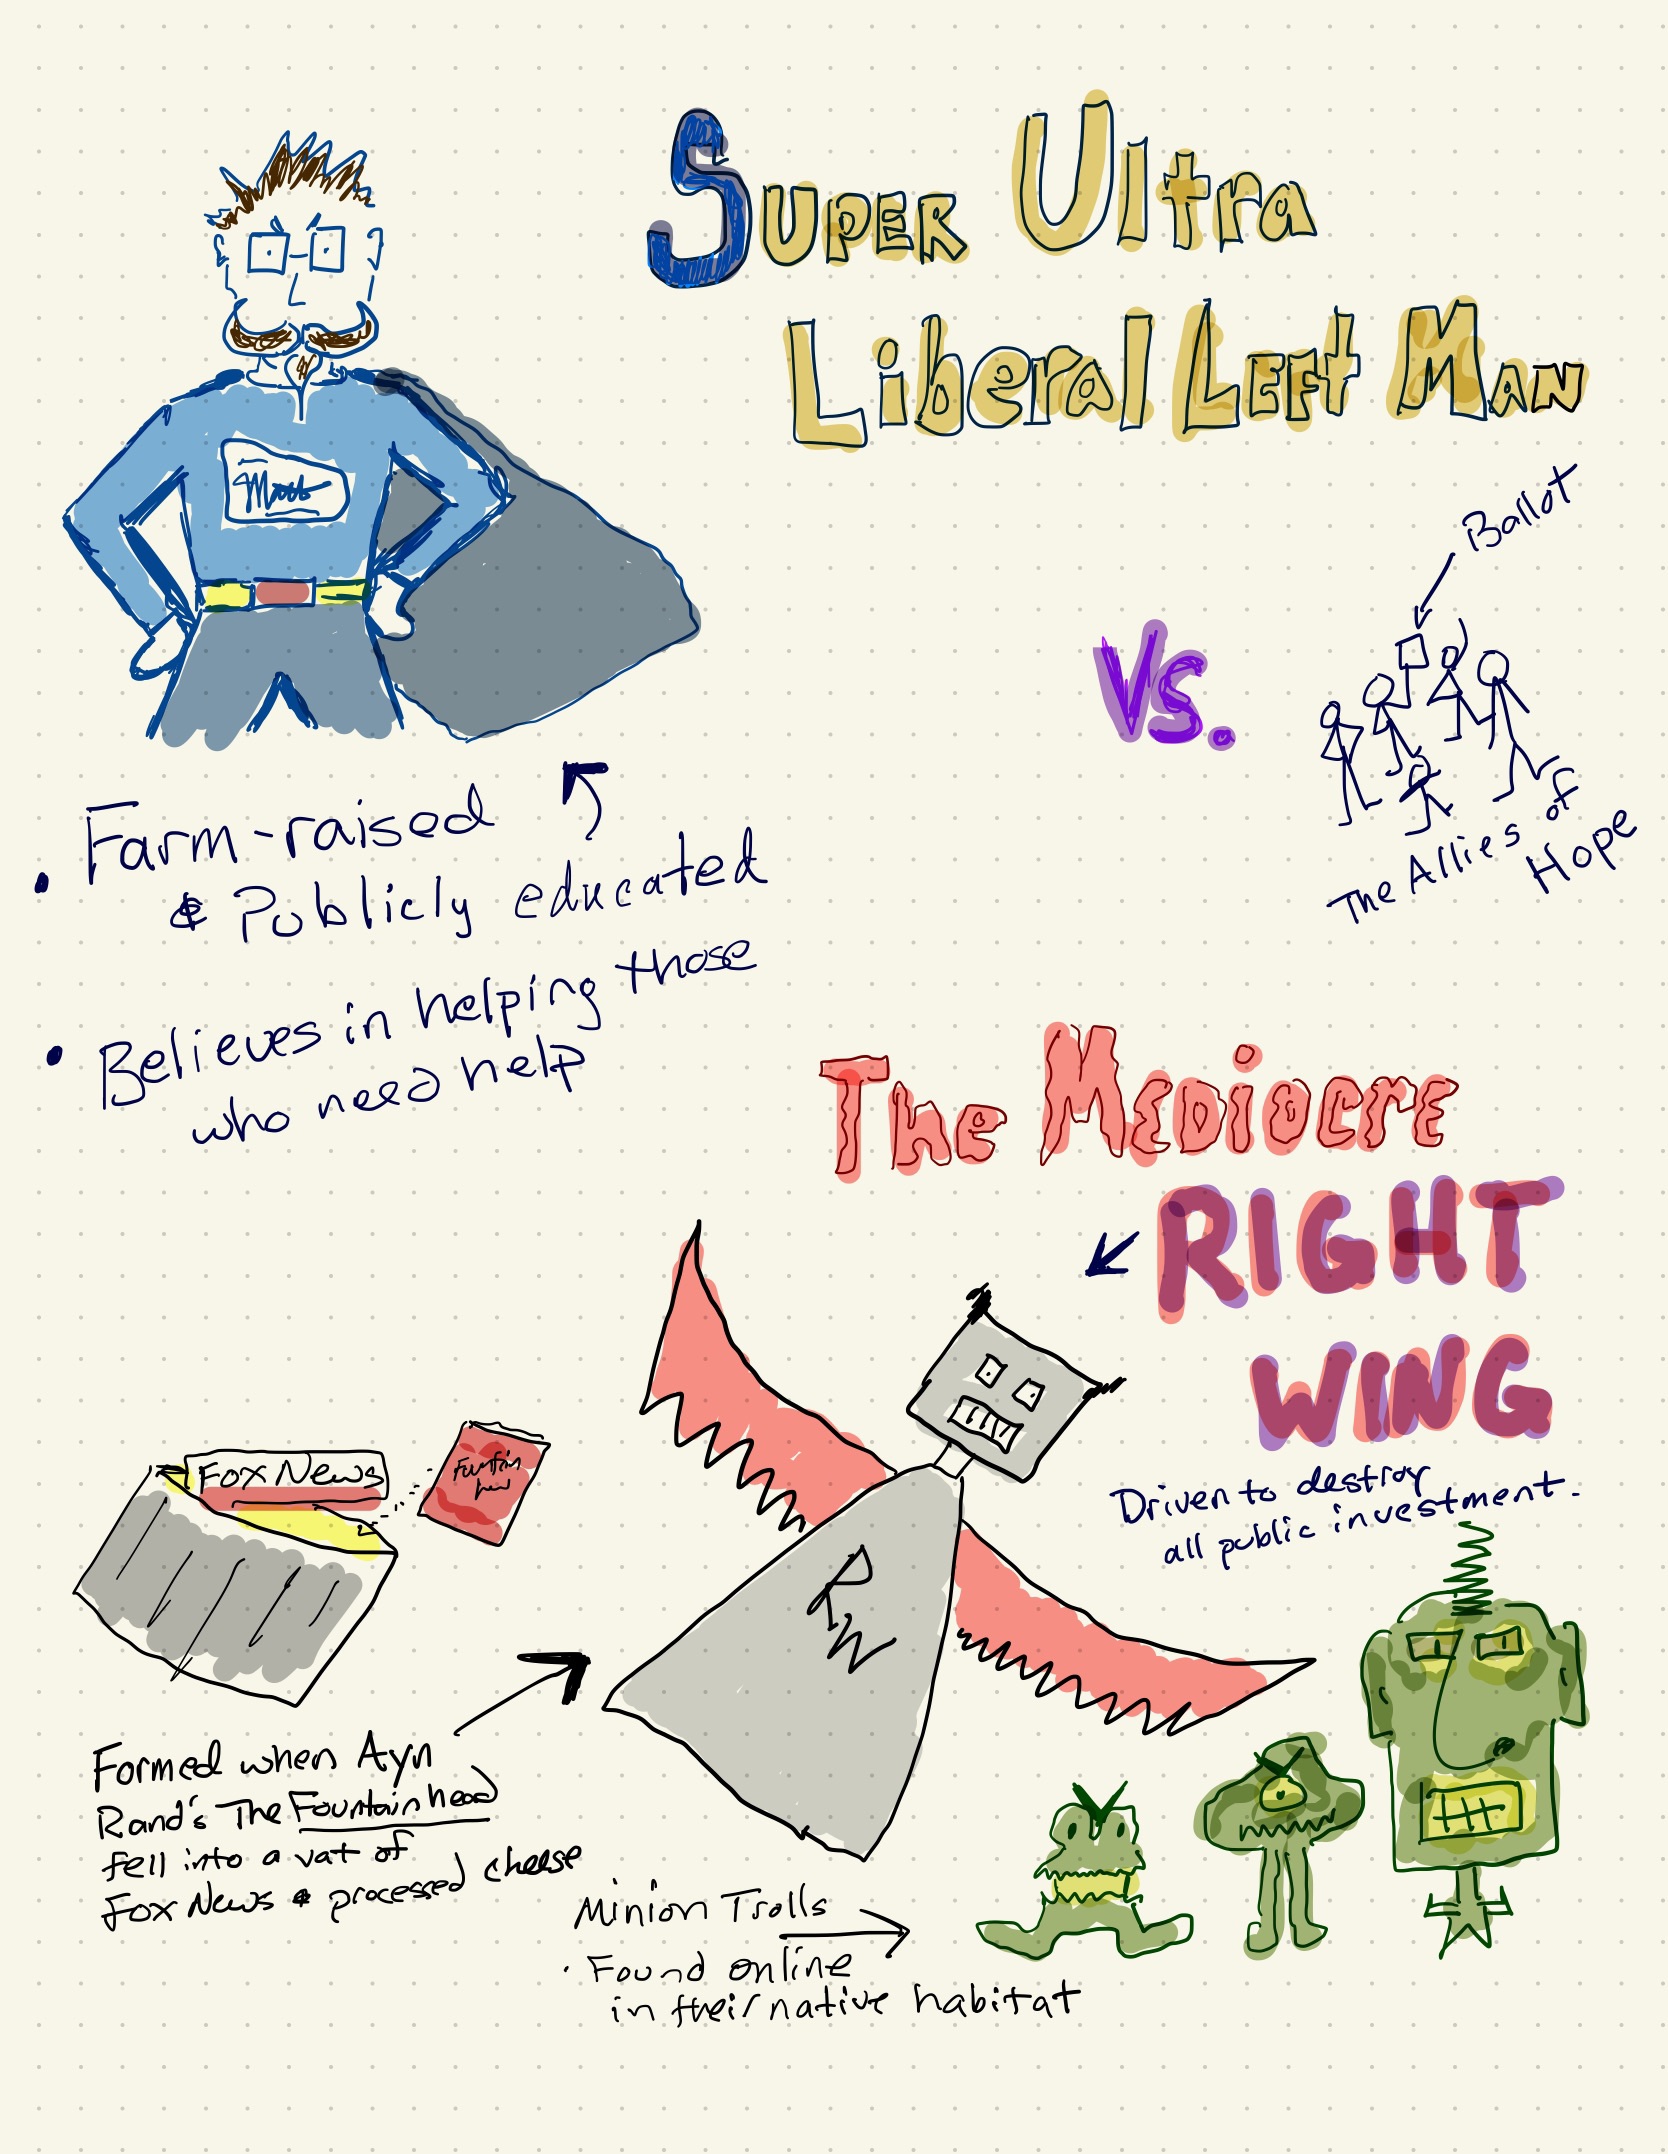 Super Ultra
Liberal Left Man
Matt
Ballot
Vs.
The Allies of
Hope
• Farm-raised
& Publicly educated
• Believes in helping those
who need help
The Mediocre
RIGHT
WING
Driven to destroy
all public investment.
Fox News
RW
Formed when Ayn
Rand's The Fountainhead
fell into a vat of
Fox News & processed cheese
Minion Trolls
• Found online
in their native habitat